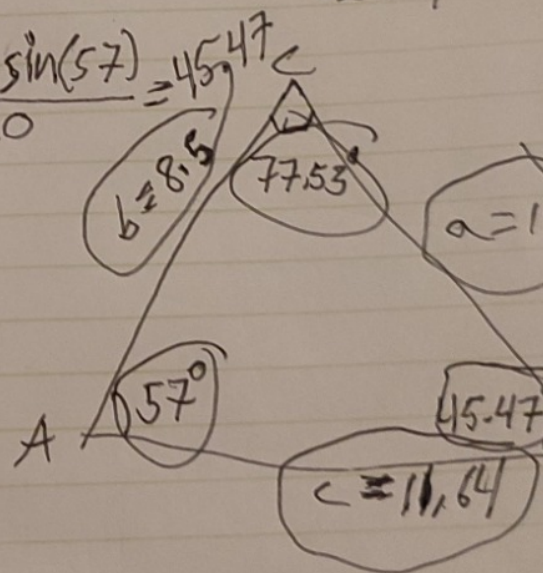 sin(57)
0
= 45.47
C
b = 8.5
77.53°
a = 1
A
57°
45.47
c = 11.64